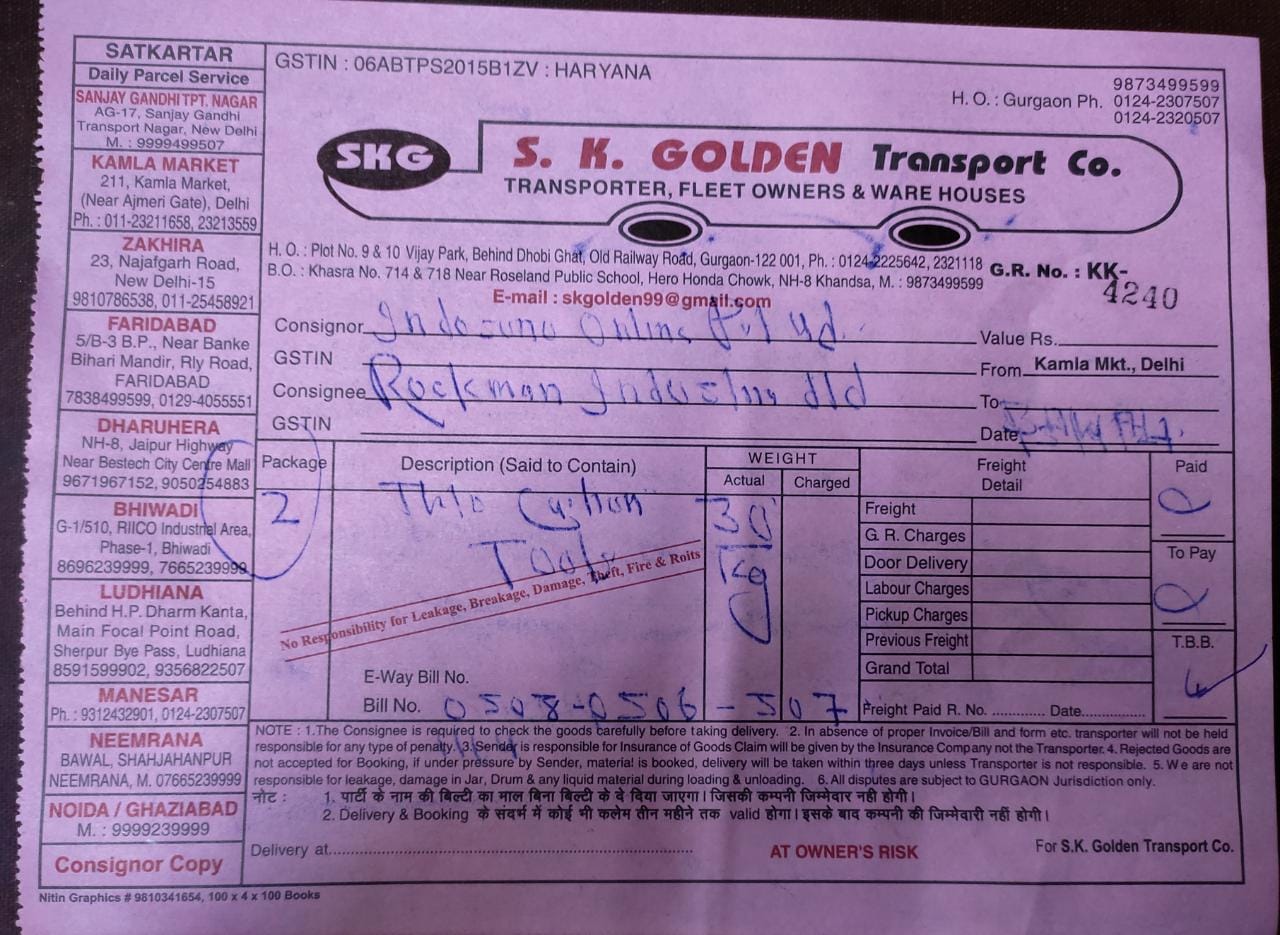 SATKARTAR
Daily Parcel Service
SANJAY GANDHI TPT. NAGAR
AG-17, Sanjay Gandhi
Transport Nagar, New Delhi
M. : 9999499507
KAMLA MARKET
211, Kamla Market,
(Near Ajmeri Gate), Delhi
Ph. : 011-23211658, 23213559
ZAKHIRA
23, Najafgarh Road,
New Delhi-15
9810786538, 011-25458921
FARIDABAD
5/B-3 B.P., Near Banke
Bihari Mandir, Rly Road,
FARIDABAD
7838499599, 0129-4055551
DHARUHERA
NH-8, Jaipur Highway
Near Bestech City Centre Mall
9671967152, 9050254883
BHIWADI
G-1/510, RIICO Industrial Area,
Phase-1, Bhiwadi
8696239999, 7665239999
LUDHIANA
Behind H.P. Dharm Kanta,
Main Focal Point Road,
Sherpur Bye Pass, Ludhiana
8591599902, 9356822507
MANESAR
Ph. : 9312432901, 0124-2307507
NEEMRANA
BAWAL, SHAHJAHANPUR
NEEMRANA, M. 07665239999
NOIDA / GHAZIABAD
M. : 9999239999
Consignor Copy
GSTIN : 06ABTPS2015B1ZV : HARYANA
9873499599
H. O. : Gurgaon Ph. 0124-2307507
0124-2320507
SKG S. K. GOLDEN Transport Co.
TRANSPORTER, FLEET OWNERS & WARE HOUSES
H. O. : Plot No. 9 & 10 Vijay Park, Behind Dhobi Ghat, Old Railway Road, Gurgaon-122 001, Ph. : 0124-2225642, 2321118
B.O. : Khasra No. 714 & 718 Near Roseland Public School, Hero Honda Chowk, NH-8 Khandsa, M. : 9873499599
G.R. No. : KK-
4240
E-mail : skgolden99@gmail.com
Consignor Online Pvt Ltd. Value Rs.
GSTIN From Kamla Mkt., Delhi
Consignee Rockman Ltd To
GSTIN Date
Package Description (Said to Contain) WEIGHT Freight Detail Paid
Actual Charged
2 30 Kg
Tools
Freight
G. R. Charges
Door Delivery To Pay
Labour Charges
Pickup Charges
Previous Freight T.B.B.
Grand Total
No Responsibility for Leakage, Breakage, Damage, Theft, Fire & Roits
E-Way Bill No.
Bill No. 0508-0506-507 Freight Paid R. No. ............. Date...............
NOTE : 1.The Consignee is required to check the goods carefully before taking delivery. 2. In absence of proper Invoice/Bill and form etc. transporter will not be held
responsible for any type of penalty. 3. Sender is responsible for Insurance of Goods Claim will be given by the Insurance Company not the Transporter. 4. Rejected Goods are
not accepted for Booking, if under pressure by Sender, material is booked, delivery will be taken within three days unless Transporter is not responsible. 5. We are not
responsible for leakage, damage in Jar, Drum & any liquid material during loading & unloading. 6. All disputes are subject to GURGAON Jurisdiction only.
नोट : 1. पार्टी के नाम की बिल्टी का माल बिना बिल्टी के दे दिया जाएगा। जिसकी कम्पनी जिम्मेदार नही होगी।
2. Delivery & Booking के संदर्भ में कोई भी कलेम तीन महीने तक valid होगा। इसके बाद कम्पनी की जिम्मेदारी नहीं होगी।
Delivery at.................... AT OWNER'S RISK For S.K. Golden Transport Co.
Nitin Graphics # 9810341654, 100 x 4 x 100 Books